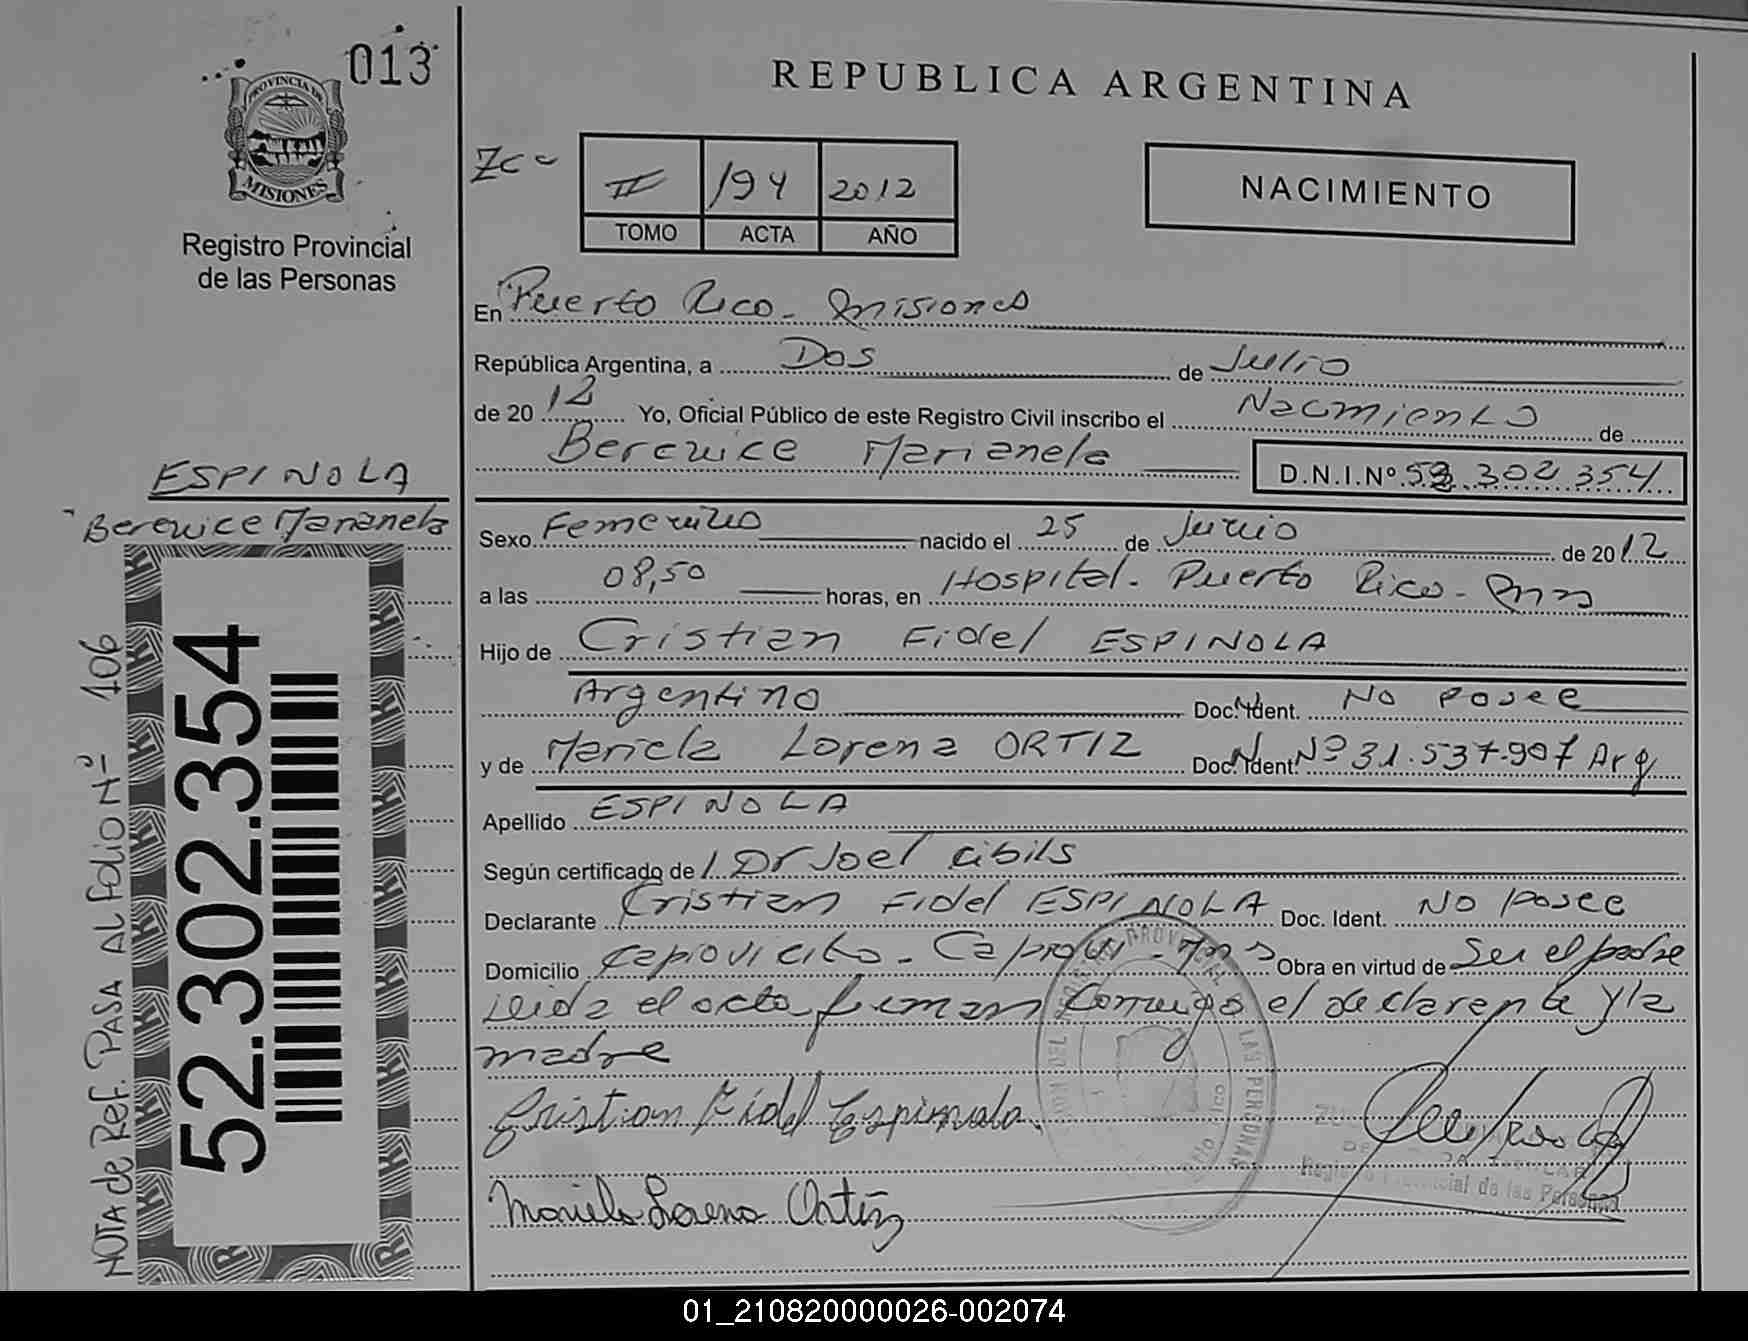 013
PROVINCIA DE
MISIONES
Registro Provincial
de las Personas
ESPINOLA
Berenice Marianela
NOTA de Ref. PASA AL FOLIO Nº 106
52.302.354
REPUBLICA ARGENTINA
II 194 2012
TOMO ACTA AÑO
NACIMIENTO
En Puerto Rico - Misiones
República Argentina, a Dos de Julio
de 2012 Yo, Oficial Público de este Registro Civil inscribo el Nacimiento de
Berenice Marianela D.N.I.Nº 52.302.354
Sexo Femenino nacido el 25 de Junio de 2012
a las 08,50 horas, en Hospital - Puerto Rico - Mns
Hijo de Cristian Fidel ESPINOLA
Argentino Doc. Ident. No posee
y de Mariela Lorena ORTIZ Doc. Ident. Nº 31.537.907 Arg
Apellido ESPINOLA
Según certificado de Dr Joel Cibils
Declarante Cristian Fidel ESPINOLA Doc. Ident. No posee
Domicilio Capiovicito - Capiovi - Mns Obra en virtud de Ser el padre
leida el acta firman conmigo el declarante y la
madre
Cristian Fidel Espinola
Mariela Lorena Ortíz
Registro Provincial de las Personas
01_210820000026-002074